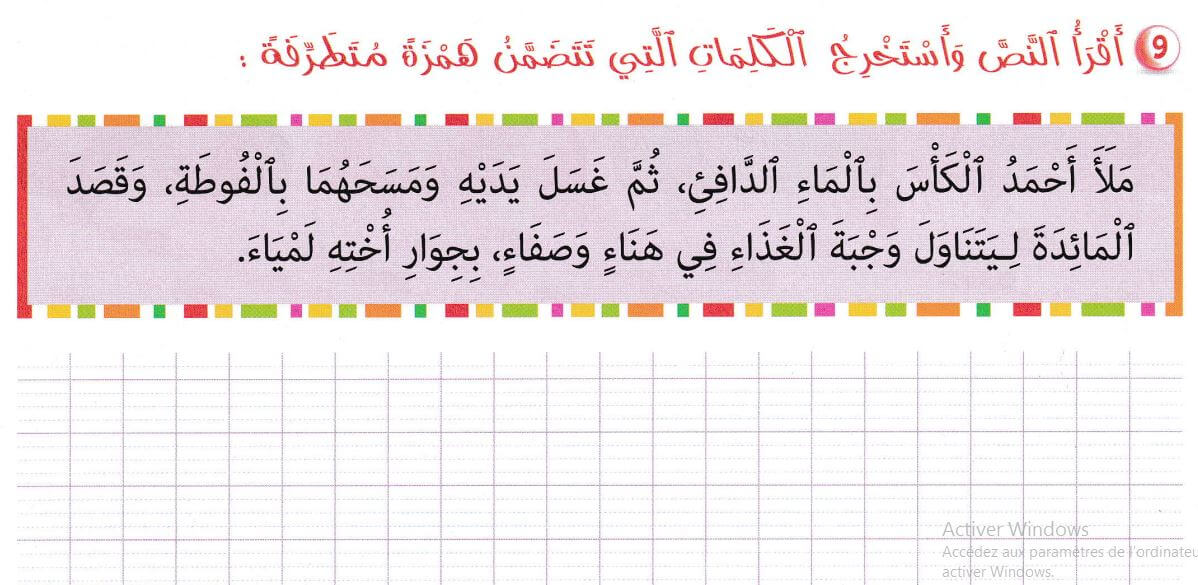 9 أَقْرَأُ ٱلنَّصَّ وَأَسْتَخْرِجُ ٱلْكَلِمَاتِ ٱلَّتِي تَتَضَمَّنُ هَمْزَةً مُتَطَرِّفَةً :
مَلَأَ أَحْمَدُ ٱلْكَأْسَ بِٱلْمَاءِ ٱلدَّافِئِ، ثُمَّ غَسَلَ يَدَيْهِ وَمَسَحَهُمَا بِٱلْفُوطَةِ، وَقَصَدَ
ٱلْمَائِدَةَ لِـيَتَنَاوَلَ وَجْبَةَ ٱلْغَذَاءِ فِي هَنَاءٍ وَصَفَاءٍ، بِجِوَارِ أُخْتِهِ لَمْيَاءَ.
Activer Windows
Accédez aux paramètres de l'ordinateu
activer Windows.